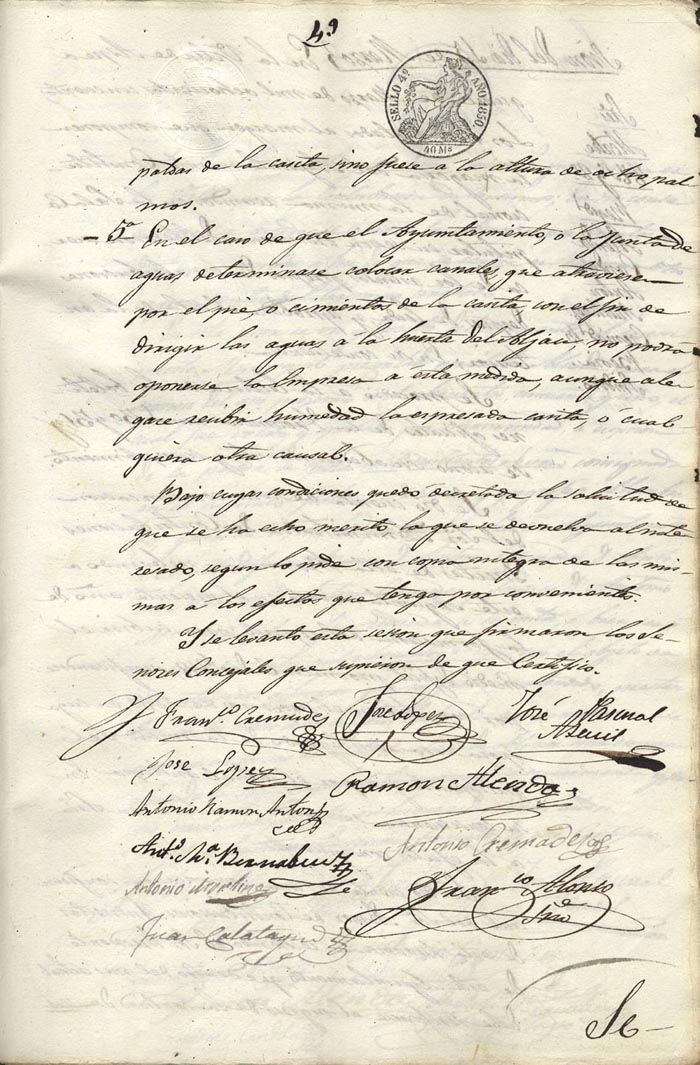 49
SELLO 4º AÑO 1850.
40 Ms
patsas de la casita, sino fuese a la altura de octro pal
mos.
- 5ª En el caso de que el Ayuntamiento, o la Junta de
aguas determinase colocar canales, que atraviesen
por el pie, o cimientos de la casita con el fin de
dirigir las aguas a la huerta del Aljau, no podrá
oponerse la Empresa a esta medida, aunque ale
gase recibir humedad la espresada casita, ó cual
quiera otra causal.
Bajo cuyas condiciones quedó decretada la solicitud de
que se ha echo merito la que se devuelva al inte
resado, segun lo pide con copia integra de las mis-
mas a los efectos que tenga por conveniente.
Y se levanto esta sesion que firmaron los Se-
ñores Concejales que supieron de que Certifico.
Franco. Cremades José Lopez José Pascual
Asencio
José Lopez Ramon Alcaraz
Antonio Ramon Antonio
Anto. Ma. Bernabeu Antonio Cremades
Antonio Martinez Franco Alonso
Srio
Juan Calatayud
Se-